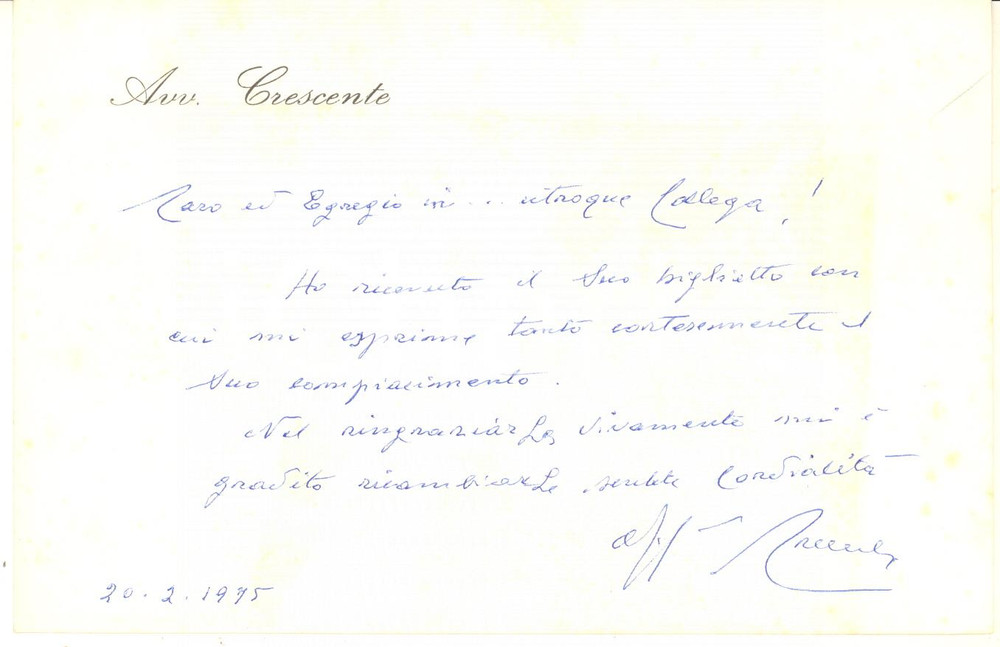 Avv. Crescente
Caro ed Egregio in... utroque Collega!
Ho ricevuto il Suo biglietto con
cui mi esprime tanto cortesemente il
Suo compiacimento.
Nel ringraziarLa vivamente mi è
gradito ricambiarLe sentite Cordialità
aff. Crescente
20.2.1975